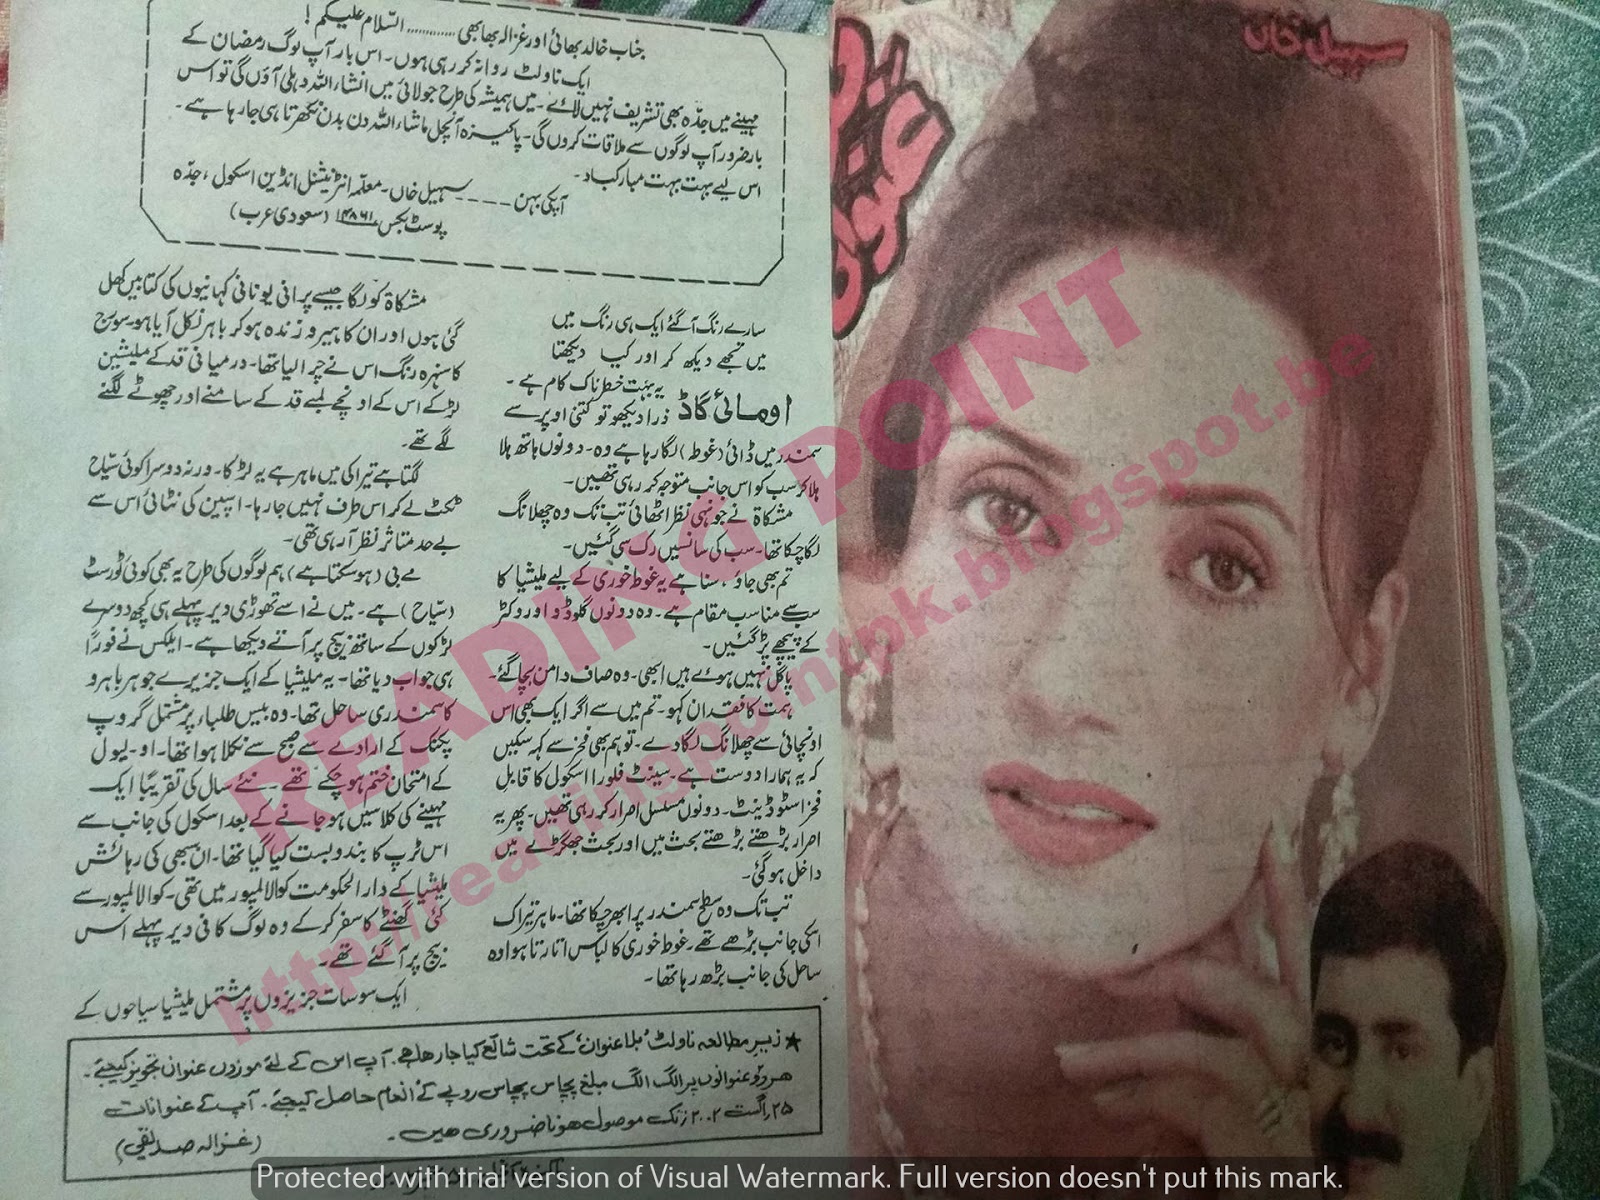 جناب خالد بھائی اور غزالہ بھابھی ............ السّلام علیکم!
ایک ناولٹ روانہ کر رہی ہوں۔ اس بار آپ لوگ رمضان کے
مہینے میں جدّہ بھی تشریف نہیں لائے۔ میں ہمیشہ کی طرح جولائی میں انشاء اللہ دہلی آؤں گی تو اس
بار ضرور آپ لوگوں سے ملاقات کروں گی۔ پاکیزہ آنچل ماشاء اللہ دن بدن نکھرتا ہی جا رہا ہے۔
اس لیے بہت بہت مبارکباد۔
آپکی بہن ۔۔۔۔۔ سہیل خاں۔ معلّمہ انٹرنیشنل انڈین اسکول، جدّہ
پوسٹ بکس ۱۴۸۶۱ (سعودی عرب)
سارے رنگ آگئے ایک ہی رنگ میں
میں تجھے دیکھ کر اور کیا دیکھتا
یہ بہت خطرناک کام ہے۔
اومائی گاڈ ذرا دیکھو تو کتنی اوپر سے
سمندر میں ڈائی (غوطہ) لگا رہا ہے وہ۔ دونوں ہاتھ ہلا
ہلا کر سب کو اس جانب متوجہ کر رہی تھیں۔
مشکاۃ نے جونہی نظر اٹھائی تب تک وہ چھلانگ
لگا چکا تھا۔ سب کی سانسیں رک سی گئیں۔
تم بھی جاؤ، سنا ہے یہ غوطہ خوری کے لیے ملیشیا کا
سب سے مناسب مقام ہے۔ وہ دونوں گلوڈو اور وکٹر
کے پیچھے پڑ گئیں۔
پاگل نہیں ہوئے ہیں ابھی۔ وہ صاف دامن بچا گئے۔
ہمت کا فقدان کہو۔ تم میں سے اگر ایک بھی اس
اونچائی سے چھلانگ لگا دے۔ تو ہم بھی فخر سے کہہ سکیں
کہ یہ ہمارا دوست ہے۔ سینٹ فلورا اسکول کا قابل
فخر اسٹوڈینٹ۔ دونوں مسلسل اصرار کر رہی تھیں۔ پھر یہ
اصرار بڑھتے بڑھتے بحث میں اور بحث جھگڑے میں
داخل ہو گئی۔
تب تک وہ سطح سمندر پر ابھر چکا تھا۔ ماہر تیراک
اسکی جانب بڑھے تھے۔ غوطہ خوری کا لباس اتارتا ہوا وہ
ساحل کی جانب بڑھ رہا تھا۔
مشکاۃ کو لگا جیسے پرانی یونانی کہانیوں کی کتابیں کھل
گئی ہوں اور ان کا ہیرو زندہ ہو کر باہر نکل آیا ہو۔ سورج
کا سنہرہ رنگ اس نے چرا لیا تھا۔ درمیانی قد کے ملیشین
لڑکے اس کے اونچے لمبے قد کے سامنے اور چھوٹے لگنے
لگے تھے۔
لگتا ہے تیراکی میں ماہر ہے یہ لڑکا۔ ورنہ دوسرا کوئی سیّاح
ٹکٹ لے کر اس طرف نہیں جا رہا۔ اسپین کی نتائی اس سے
بے حد متاثر نظر آ رہی تھی۔
مے بی (ہو سکتا ہے) ہم لوگوں کی طرح یہ بھی کوئی ٹورسٹ
(سیّاح) ہے۔ میں نے اسے تھوڑی دیر پہلے ہی کچھ دوسرے
لڑکوں کے ساتھ بیچ پر آتے دیکھا ہے۔ ایلکس نے فوراً
ہی جواب دیا تھا۔ یہ ملیشیا کے ایک جزیرے جوہر باہرو
کا سمندری ساحل تھا۔ وہ بیس طلباء پر مشتمل گروپ
پکنک کے ارادے سے صبح سے نکلا ہوا تھا۔ او۔لیول
کے امتحان ختم ہو چکے تھے۔ نئے سال کی تقریباً ایک
مہینے کی کلاسیں ہو جانے کے بعد اسکول کی جانب سے
اس ٹرپ کا بندوبست کیا گیا تھا۔ ان سبھی کی رہائش
ملیشیا کے دار الحکومت کوالالمپور میں تھی۔ کوالالمپور سے
کئی گھنٹے کا سفر کر کے وہ لوگ کافی دیر پہلے اس
بیچ پر آ گئے تھے۔
ایک سو سات جزیروں پر مشتمل ملیشیا سیاحوں کے
★ زیر مطالعہ ناولٹ 'بلا عنوان' کے تحت شائع کیا جا رہا ہے۔ آپ اس کے لئے موزوں عنوان تجویز کیجئے۔
ہر دو عنوانوں پر الگ الگ مبلغ پچاس پچاس روپے کے انعام حاصل کیجئے۔ آپ کے عنوانات
۲۵ اگست ۲۰۰۲ تک موصول ہونا ضروری ہیں۔ (غزالہ صدیقی)
سہیل خاں
عنوان
READING POINT
http://readingpointpk.blogspot.be
Protected with trial version of Visual Watermark. Full version doesn't put this mark.